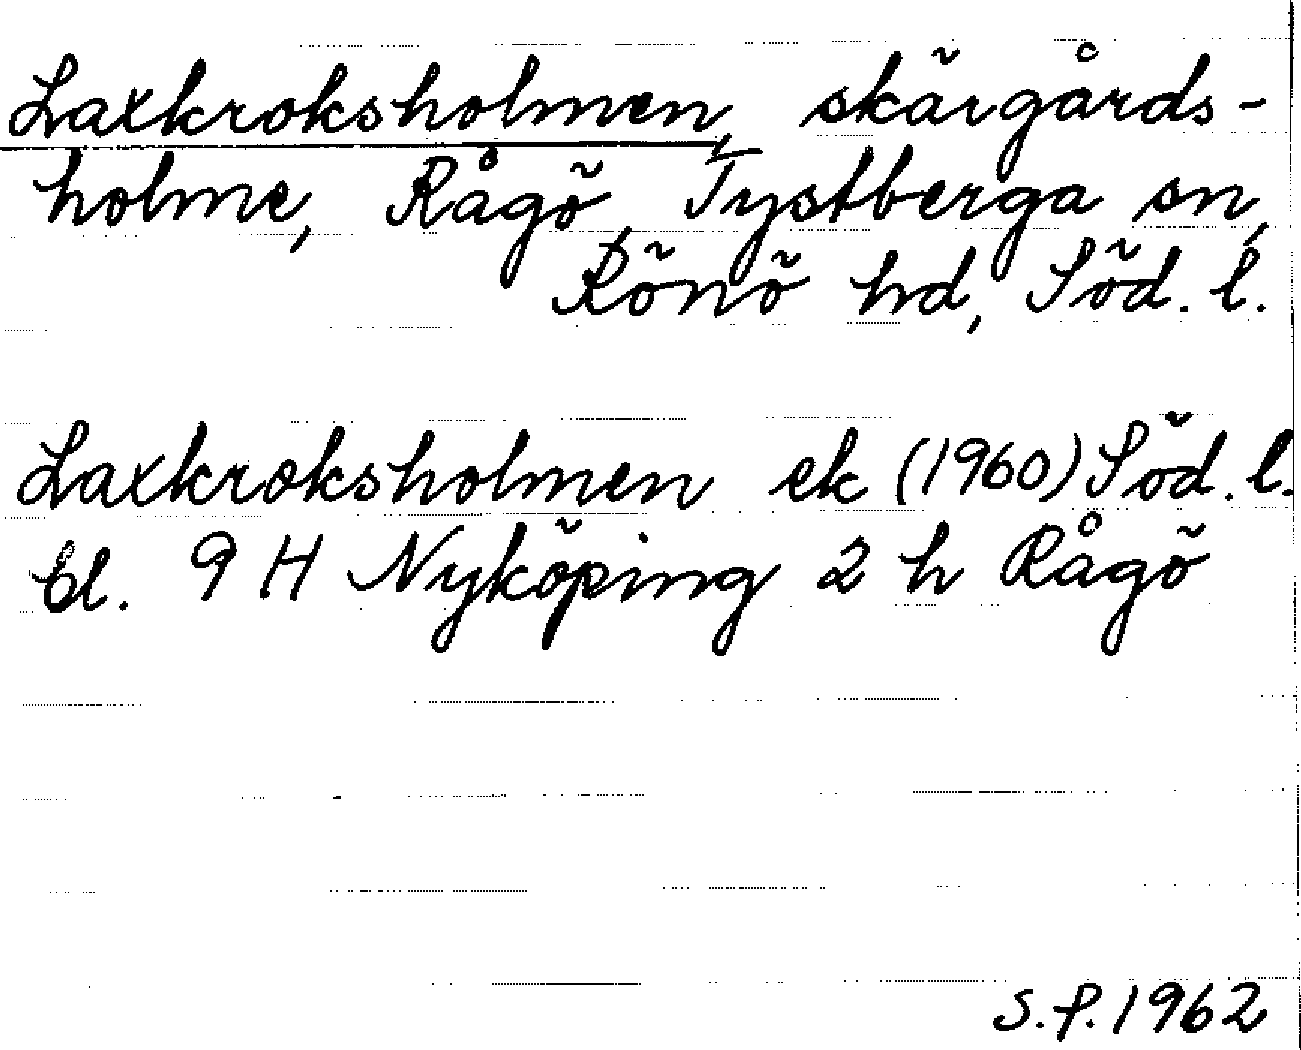 Laxkroksholmen, skärgårds-
holme, Rågö, Tystberga sn,
Rönö hd, Söd. l.
Laxkroksholmen ek (1960) Söd. l.
bl. 9 H Nyköping 2 h Rågö
S.P. 1962